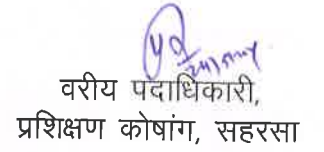 वरीय पदाधिकारी,
प्रशिक्षण कोषांग, सहरसा